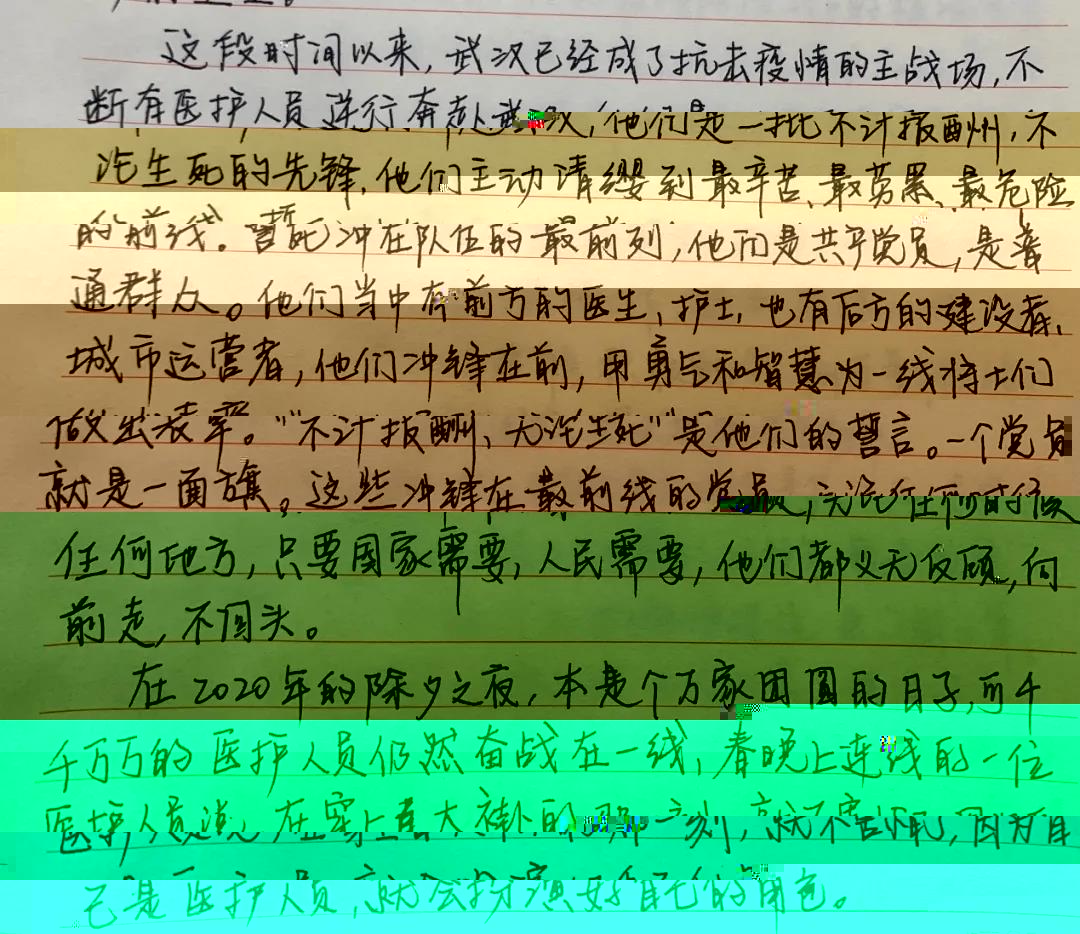 这段时间以来，武汉已经成了抗击疫情的主战场，不
断有医护人员逆行奔赴武汉，他们是一批不计报酬，不
论生死的先锋，他们主动请缨到最辛苦、最劳累、最危险
的前线。誓死冲在队伍的最前列，他们是共产党员，是普
通群众。他们当中有前方的医生、护士，也有后方的建设者、
城市运营者，他们冲锋在前，用勇气和智慧为一线将士们
做出表率。"不计报酬、无论生死"是他们的誓言。一个党员
就是一面旗。这些冲锋在最前线的党员，无论任何时候
任何地方，只要国家需要，人民需要，他们都义无反顾，向
前走，不回头。
在2020年的除夕之夜，本是个万家团圆的日子，可千
千万万的医护人员仍然奋战在一线，春晚上连线的一位
医护人员说，在穿上白大褂的那一刻，就不害怕，因为自
己是医护人员，就会扮演好自己的角色。